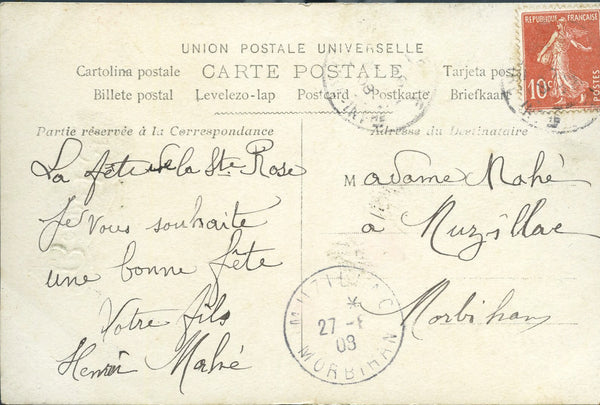 UNION POSTALE UNIVERSELLE
Cartolina postale CARTE POSTALE Tarjeta postal
Billete postal Levelezo-lap Postcard Postkarte Briefkaart
REPUBLIQUE FRANÇAISE
10c
Partie réservée à la Correspondance
La fête de la Ste Rose
Je vous souhaite
une bonne fête
Votre fils
Henri Mahé
Adresse du Destinataire
Madame Mahé
a Muzillac
Morbihan
MUZILLAC
27
08
MORBIHAN